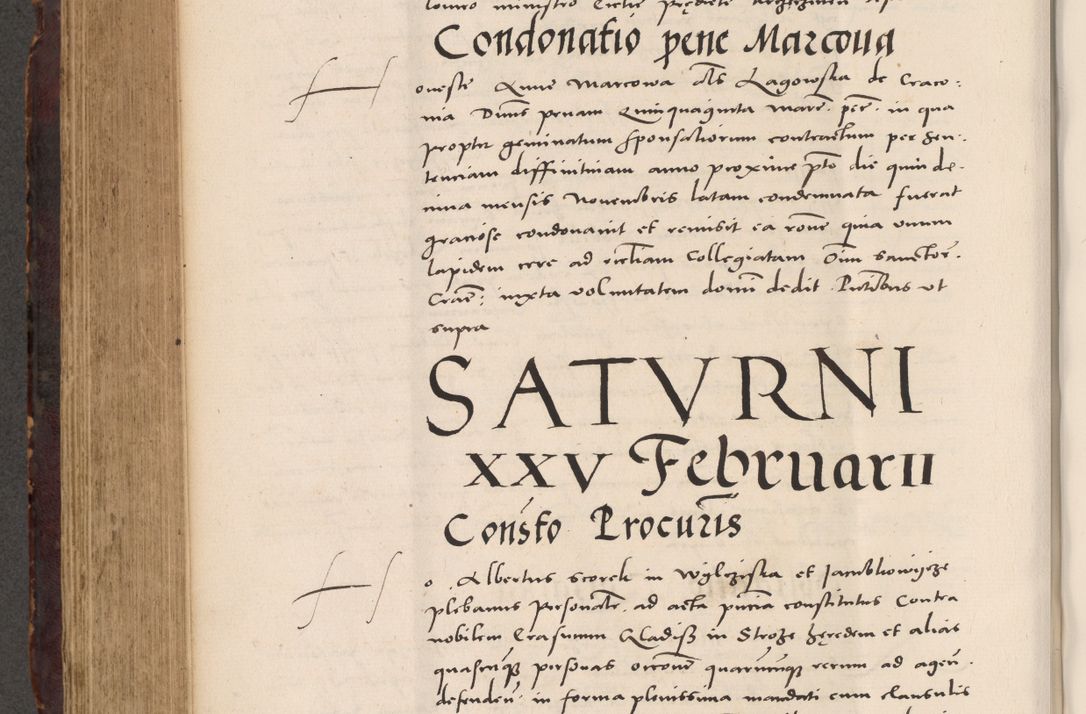 Condonatio pene Marcoua
Honeste Anne Marcowa als Lagowska de Craco:
uia Dnus penam Quinquaginta marc. pec. in qua
propter geminatum sponsaliorum contractum per sen-
tenciam diffinitiuam anno proxime pto die quinde-
cima mensis Nouembris latam condemnata fuerat
graciose condonauit et remisit ea rone quia vnum
lapidem cere ad ecclesiam Collegiatam Oim Sanctor.
Crac: iuxta voluntatem domini dedit. Pntibus vt
supra
SATVRNI
XXV Februarii
Consto Procuris
Ho. Albertus Scorek in Wylczyska et
plebanus personalr. ad acta pncia constitutus Contra
nobilem Erasmum Gladiss in Stroze heredem et alias
quascunqz personas occone quarumcumqz rerum ad agen.
defenden. in forma plenissima mandati cum clausulis